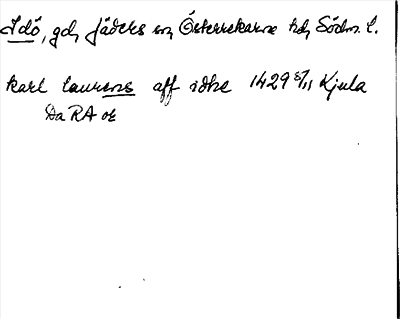 Idö, gd, Jäders sn, Österrekarne hd, Södm. l.
karl laurens aff idhe 1429 5/11 Kjula
Da RA or